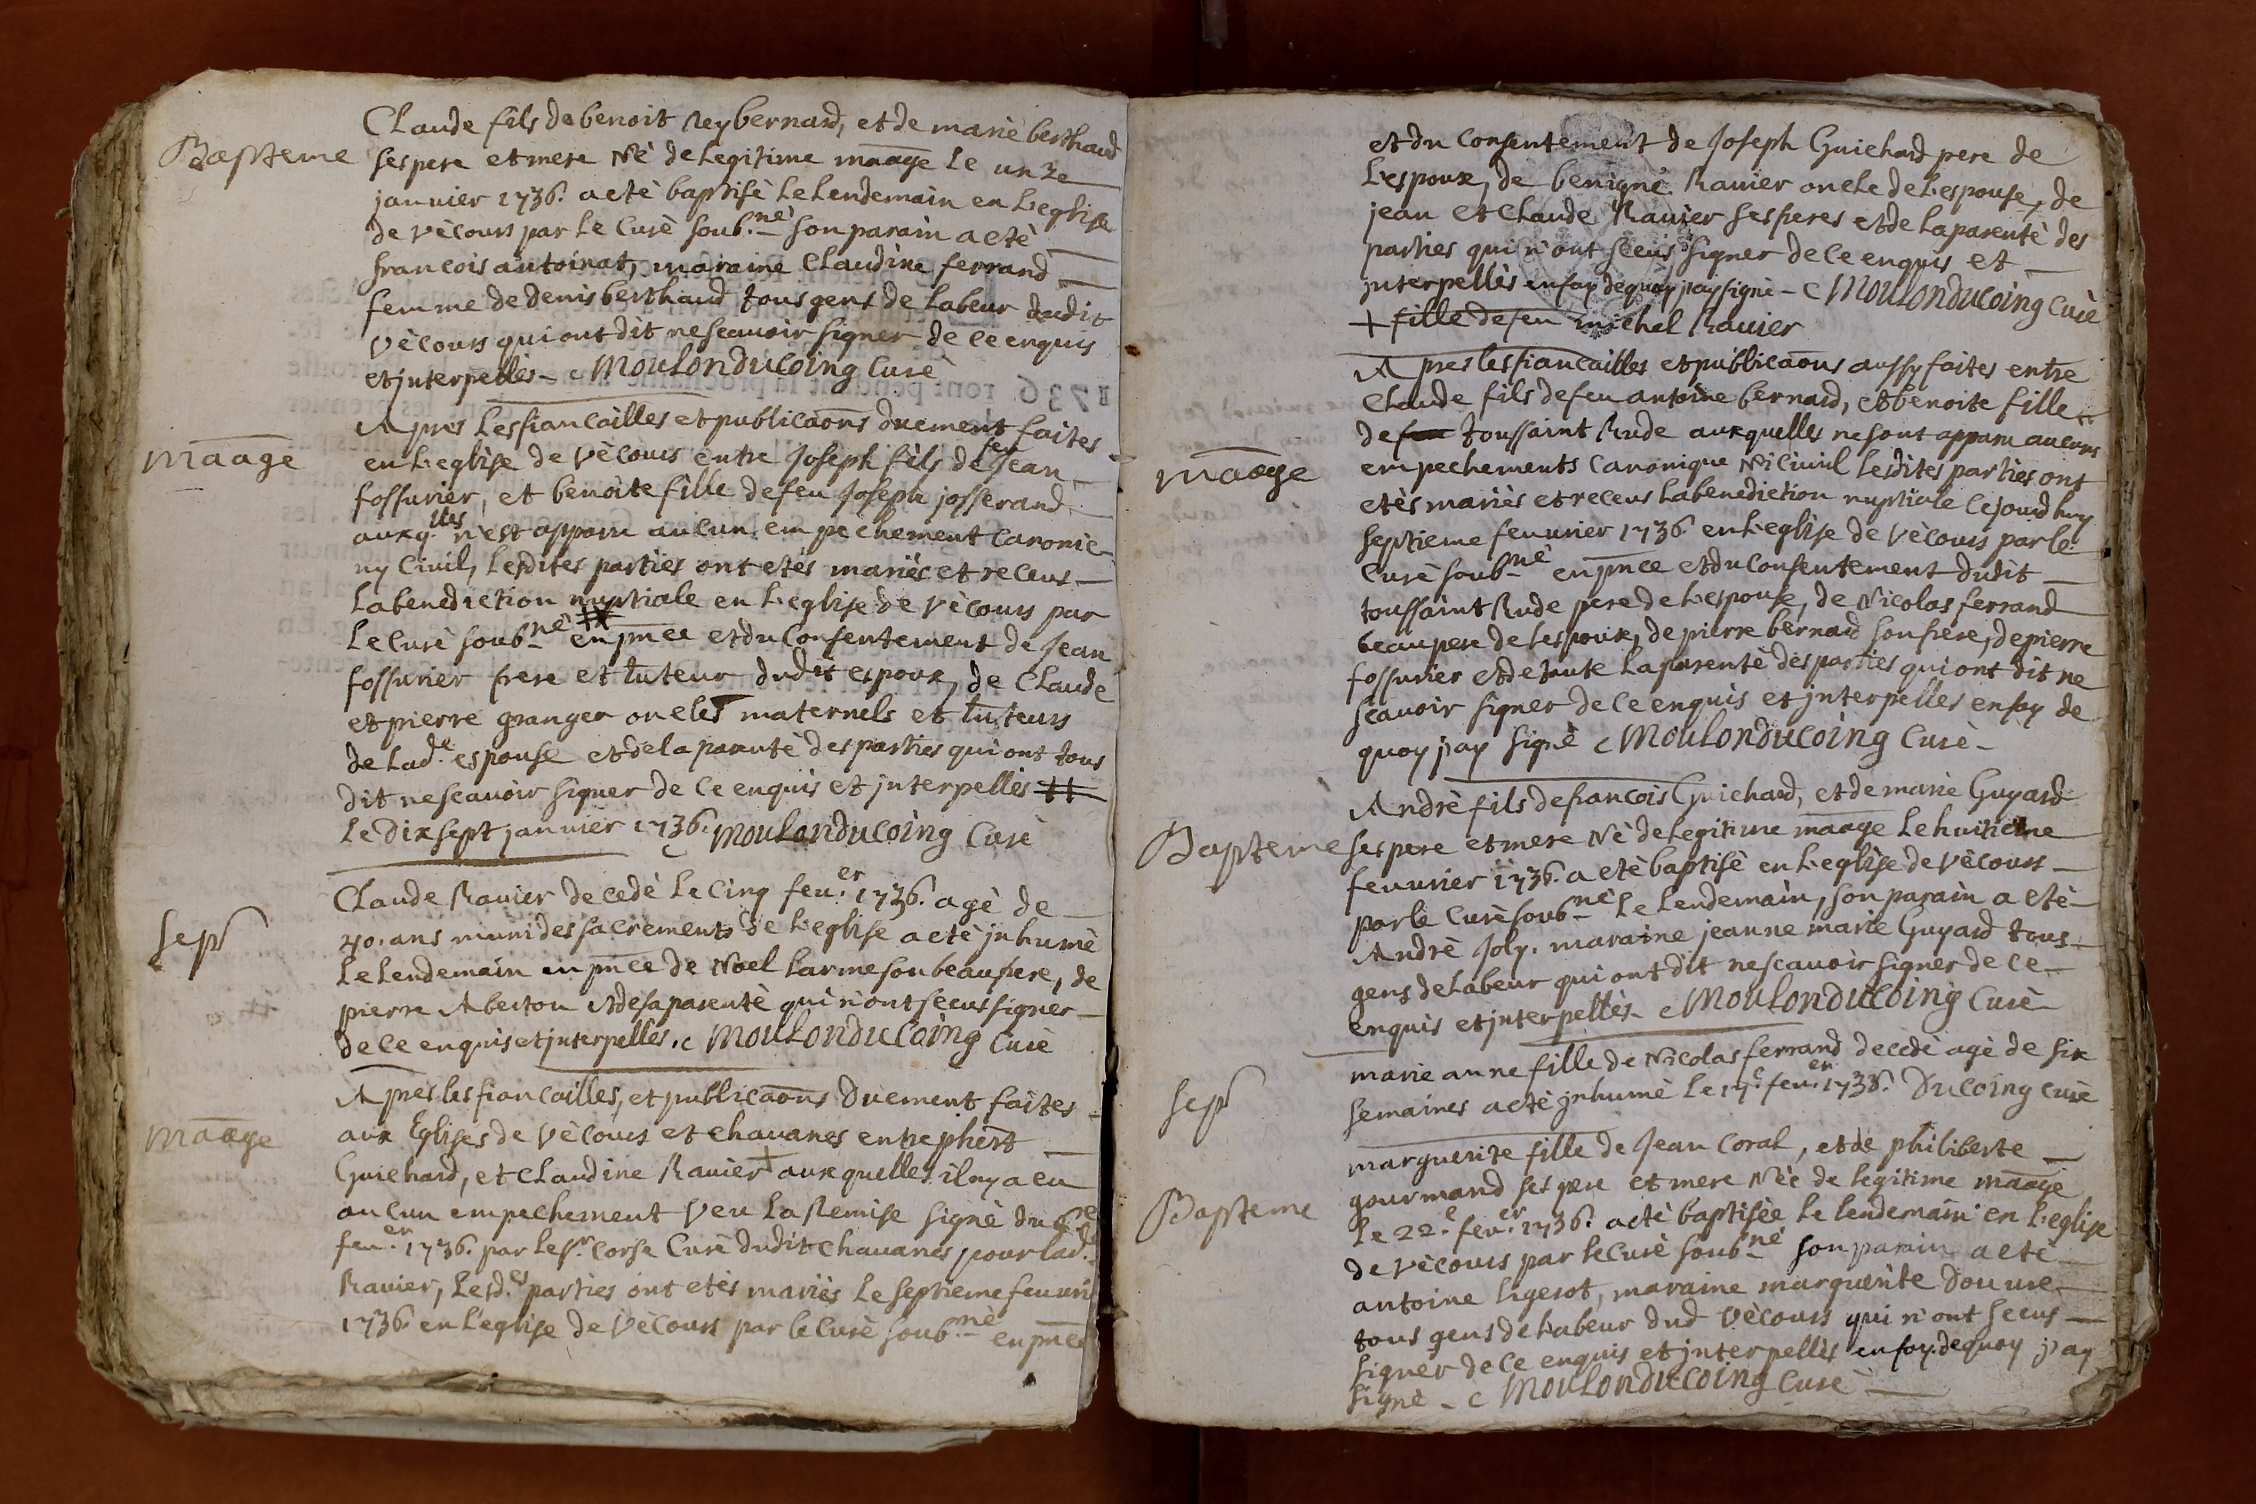 Claude fils de benoit Reybernard, et de marie berthaud
Bapteme
ses pere et mere Né de legitime maage le unze
janvier 1736. a eté baptisé le lendemain en l'eglise
de vécours par le Curé soub.né son parain a eté
francois antoinat, maraine Claudine ferrand
femme de denis berthaud tous gens de labeur dudit
vécours qui ont dit ne scavoir signer de ce enquis
et interpellés - C Moulonducoing Curé
Apres les fiancailles et publicaons duement faites
maage
en l'eglise de vécours entre Joseph fils de feu Jean
fossurier, et benoite fille de feu Joseph josserand
auxq.lles n'est apparu aucun empechement canonic
ny Civil, lesdites parties ont etés mariés et receus
la benediction nuptiale en l'eglise de vécours par
le Curé soub.né # en pnce et du Consentement de Jean
fossurier frere et tuteur dudit espoux, de Claude
et pierre granger oncles maternels et tuteurs
de lad.e espouse et de la parenté des parties qui ont tous
dit ne scavoir signer de ce enquis et interpellés #
le dix sept janvier 1736. C Moulonducoing Curé
Claude Ravier decedé le Cinq feu.er 1736. agé de
sep
40. ans muni des sacrements de l'eglise a eté inhumé
le lendemain en pnce de Noel larme son beaufrere, de
pierre Aberton et de sa parenté qui n'ont sceus signer
de ce enquis et interpellés. C Moulonducoing Curé
Apres les fiancailles, et publicaons Duement faites
maage
aux Eglises de vécours et chavanes entre phert
Guichard, et Claudine Ravier + aux quelles il ny a eu
aucun empechement veu la Remise signé du 6.e
feu.er 1736. par le Sr. Corse Curé dudit chavanes pour lad.e
Ravier, lesd.es parties ont etés mariés le septieme feuvri
1736. en l'eglise de vécours par le Curé soub.né en pnce
et du Consentement de Joseph Guichard pere de
L'espoux, de benigne Ravier oncle de l'espouse, de
jean et Claude Ravier ses freres et de la parenté des
parties qui n'ont sceus signer de ce enquis et
interpellés en foy de quoy j'ay signé - C Moulonducoing Curé
+ fille de feu michel Ravier
Apres les fiancailles et publicaons aussy faites entre
Claude fils de feu antoine bernard, et benoite fille
de feu toussaint Rude aux quelles ne sont apparu aucuns
maage
empechements Canonique Ni Civil lesdites parties ont
etés mariés et receus la benediction nuptiale cejourdhuy
septieme feuvrier 1736. en l'eglise de vécours par le
Curé soub.né en pnce et du Consentement dudit
toussaint Rude pere de l'espouse, de Nicolas ferrand
beaupere de l'espoux, de pierre bernard son frere, de pierre
fossurier et de toute la parenté des parties qui ont dit ne
scavoir signer de ce enquis et interpelles en foy de
quoy j'ay signé C Moulonducoing Curé -
André fils de francois Guichard, et de marie Guyard
Bapteme
ses pere et mere Né de legitime maage le huitieme
feuvrier 1736. a eté baptisé en l'eglise de vécours
par le Curé soub.né le lendemain, son parain a eté
André Joly. maraine jeanne marie Guyard tous
gens de labeur qui ont dit ne scavoir signer de ce
enquis et interpellés - C Moulonducoing Curé
marie anne fille de Nicolas ferrand decedé agé de six
sep
semaines a eté inhumé le 17.e feu.er 1736. Ducoing Curé
marguerite fille de Jean Coral, et de philiberte
gourmand ses pere et mere Née de legitime maage
Bapteme
le 22.e feu.er 1736. a eté baptisée le lendemain en l'eglise
de vécours par le Curé soub.né son parain a eté
antoine ligerot, maraine marguerite Douvre
tous gens de labeur dud vécours qui n'ont sceus
signer de ce enquis et interpellés en foy de quoy j'ay
signé - C Moulonducoing Curé